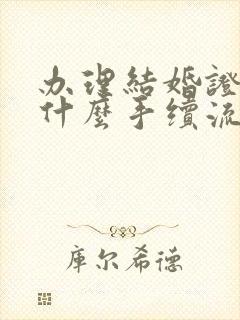 办理結婚證
什麼手續流
庫尔希德